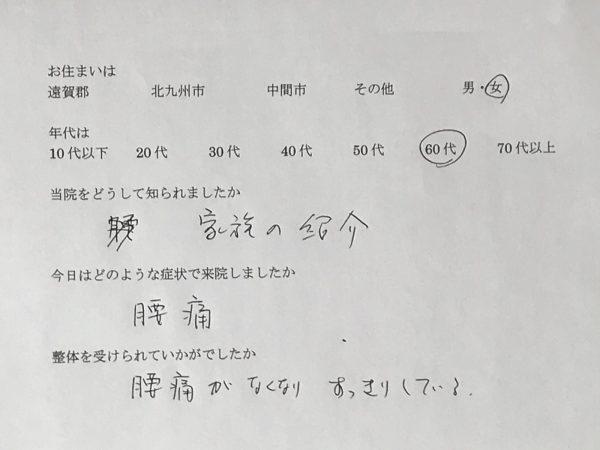 お住まいは
遠賀郡 北九州市 中間市 その他 男・女
年代は
10代以下 20代 30代 40代 50代 60代 70代以上
当院をどうして知られましたか
家族の紹介
今日はどのような症状で来院しましたか
腰痛
整体を受けられていかがでしたか
腰痛がなくなり すっきりしている.